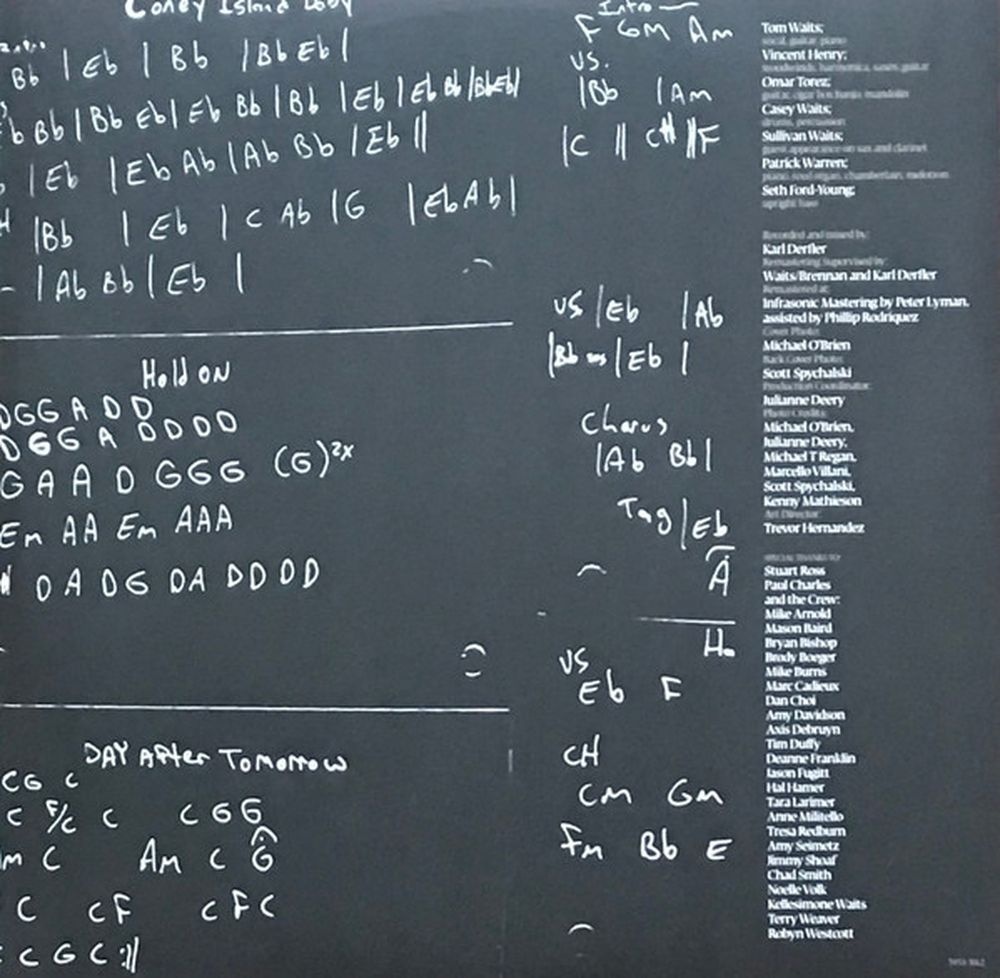 Coney Island Baby
Bb | Eb | Bb | Bb Eb |
b Bb | Bb Eb | Eb Bb | Bb | Eb | Eb Bb | Bb Eb |
| Eb | Eb Ab | Ab Bb | Eb ||
| Bb | Eb | C Ab | G | Eb Ab |
| Ab Bb | Eb |
Hold ON
DGG A D D
D G G A D D D D
G A A D GGG (G)2x
Em AA Em AAA
D A DG DA DD DD
DAY AFter Tomorrow
CG C
C F/C C C G G
m C Am C G
C C F C F C
C G C :||
Intro
F Gm Am
vs.
| Bb | Am
| C || C# || F
vs | Eb | Ab
| Bb | Eb |
Chorus
| Ab Bb |
Tag | Eb
A
H
vs
Eb F
CH
Cm Gm
Fm Bb E
Tom Waits;
vocal, guitar, piano
Vincent Henry;
woodwinds, harmonica, guitar
Omar Torez;
Casey Waits;
drums, percussion
Sullivan Waits;
guest appearance on sax and clarinet
Patrick Warren;
Seth Ford-Young;
upright bass
Recorded and mixed by:
Karl Derfler
Remastering Supervised by:
Waits/Brennan and Karl Derfler
Remastered at:
Infrasonic Mastering by Peter Lyman,
assisted by Phillip Rodriquez
Cover Photo:
Michael O'Brien
Back Cover Photo:
Scott Spychalski
Production Coordinator:
Julianne Deery
Photo Credits:
Michael O'Brien,
Julianne Deery,
Michael T Regan,
Marcello Villani,
Scott Spychalski,
Kenny Mathieson
Art Director:
Trevor Hernandez
SPECIAL THANKS TO:
Stuart Ross
Paul Charles
and the Crew:
Mike Arnold
Mason Baird
Bryan Bishop
Brody Boeger
Mike Burns
Marc Cadieux
Dan Choi
Amy Davidson
Axis Debruyn
Tim Duffy
Deanne Franklin
Jason Fugitt
Hal Hamer
Tara Larimer
Anne Militello
Tresa Redburn
Amy Seimetz
Jimmy Shoaf
Chad Smith
Noelle Volk
Kellesimone Waits
Terry Weaver
Robyn Westcott